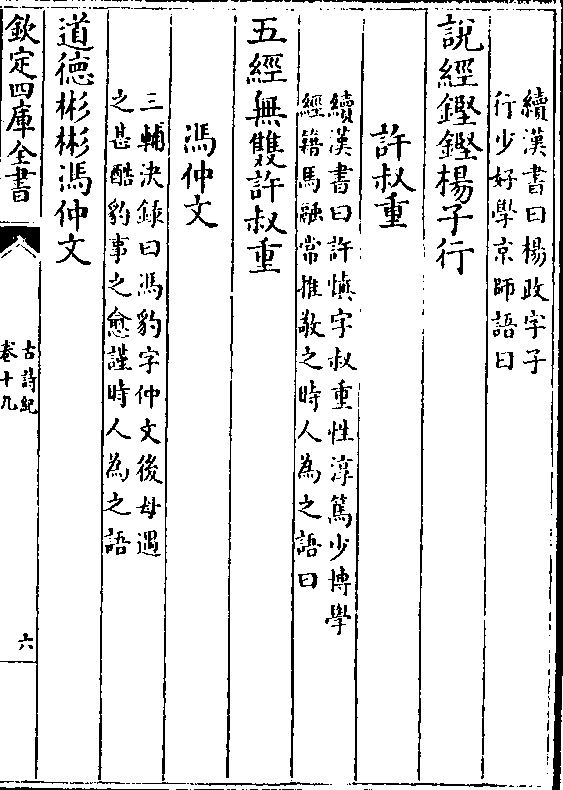 續漢書曰楊政字子
行少好學京師語曰
說經鏗鏗楊子行
許叔重
續漢書曰許慎字叔重性淳篤少博學
經籍馬融常推敬之時人為之語曰
五經無雙許叔重
馮仲文
三輔決録曰馮豹字仲文後母遇
之甚酷豹事之愈謹時人為之語
道德彬彬馮仲文
欽定四庫全書
古詩紀
卷十九
六